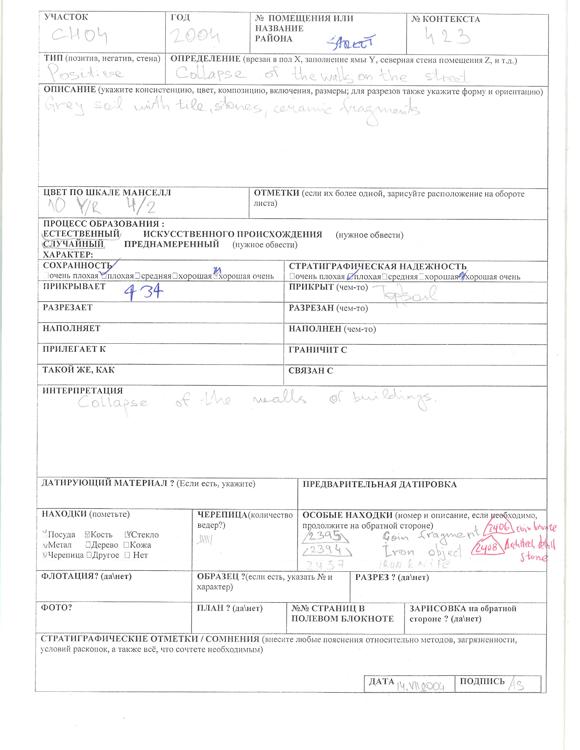 УЧАСТОК ГОД № ПОМЕЩЕНИЯ ИЛИ НАЗВАНИЕ РАЙОНА № КОНТЕКСТА
CH04 2004 street 423
ТИП (позитив, негатив, стена) ОПРЕДЕЛЕНИЕ (врезан в пол X, заполнение ямы Y, северная стена помещения Z, и т.д.)
Positive Collapse of the walls on the street
ОПИСАНИЕ (укажите консистенцию, цвет, композицию, включения, размеры; для разрезов также укажите форму и ориентацию)
Grey soil with tile, stones, ceramic fragments
ЦВЕТ ПО ШКАЛЕ МАНСЕЛЛ
10 Y/R 4/2
ОТМЕТКИ (если их более одной, зарисуйте расположение на обороте
листа)
ПРОЦЕСС ОБРАЗОВАНИЯ :
ЕСТЕСТВЕННЫЙ ИСКУССТВЕННОГО ПРОИСХОЖДЕНИЯ (нужное обвести)
СЛУЧАЙНЫЙ ПРЕДНАМЕРЕННЫЙ (нужное обвести)
ХАРАКТЕР:
СОХРАННОСТЬ СТРАТИГРАФИЧЕСКАЯ НАДЕЖНОСТЬ
очень плохая плохая средняя хорошая хорошая очень очень плохая плохая средняя хорошая хорошая очень
ПРИКРЫВАЕТ 434 ПРИКРЫТ (чем-то) Topsoil
РАЗРЕЗАЕТ РАЗРЕЗАН (чем-то)
НАПОЛНЯЕТ НАПОЛНЕН (чем-то)
ПРИЛЕГАЕТ К ГРАНИЧИТ С
ТАКОЙ ЖЕ, КАК СВЯЗАН С
ИНТЕРПРЕТАЦИЯ
Collapse of the walls of buildings.
ДАТИРУЮЩИЙ МАТЕРИАЛ ? (Если есть, укажите) ПРЕДВАРИТЕЛЬНАЯ ДАТИРОВКА
НАХОДКИ (пометьте)
Посуда Кость Стекло
Метал Дерево Кожа
Черепица Другое Нет
ЧЕРЕПИЦА(количество
ведер?)
ОСОБЫЕ НАХОДКИ (номер и описание, если необходимо,
продолжите на обратной стороне)
2395 Coin fragment 2406
2394 Iron object 2408
2457 iron knife stone
ФЛОТАЦИЯ? (да\нет) ОБРАЗЕЦ ?(если есть, указать № и
характер) РАЗРЕЗ ? (да\нет)
ФОТО? ПЛАН ? (да\нет) №№ СТРАНИЦ В
ПОЛЕВОМ БЛОКНОТЕ ЗАРИСОВКА на обратной
стороне ? (да\нет)
СТРАТИГРАФИЧЕСКИЕ ОТМЕТКИ / СОМНЕНИЯ (внесите любые пояснения относительно методов, загрязненности,
условий раскопок, а также всё, что сочтете необходимым)
ДАТА 14.VII2004 ПОДПИСЬ